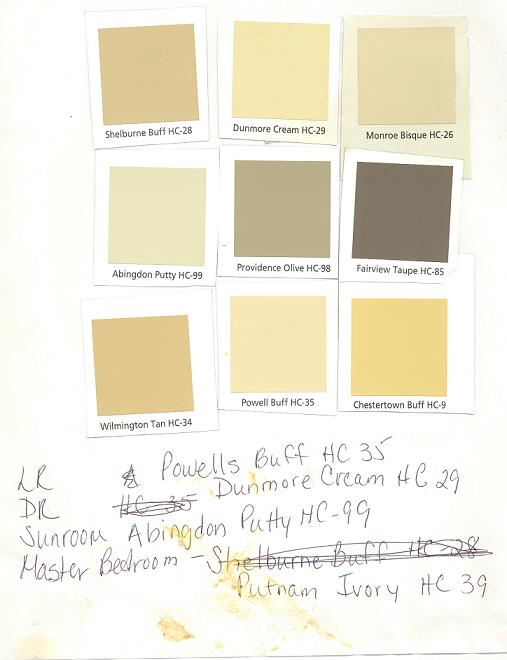 Shelburne Buff HC-28
Dunmore Cream HC-29
Monroe Bisque HC-26
Abingdon Putty HC-99
Providence Olive HC-98
Fairview Taupe HC-85
Wilmington Tan HC-34
Powell Buff HC-35
Chestertown Buff HC-9
LR Powells Buff HC 35
DR HC-35 Dunmore Cream HC 29
Sunroom Abingdon Putty HC-99
Master Bedroom - Shelburne Buff HC-28
Putnam Ivory HC 39